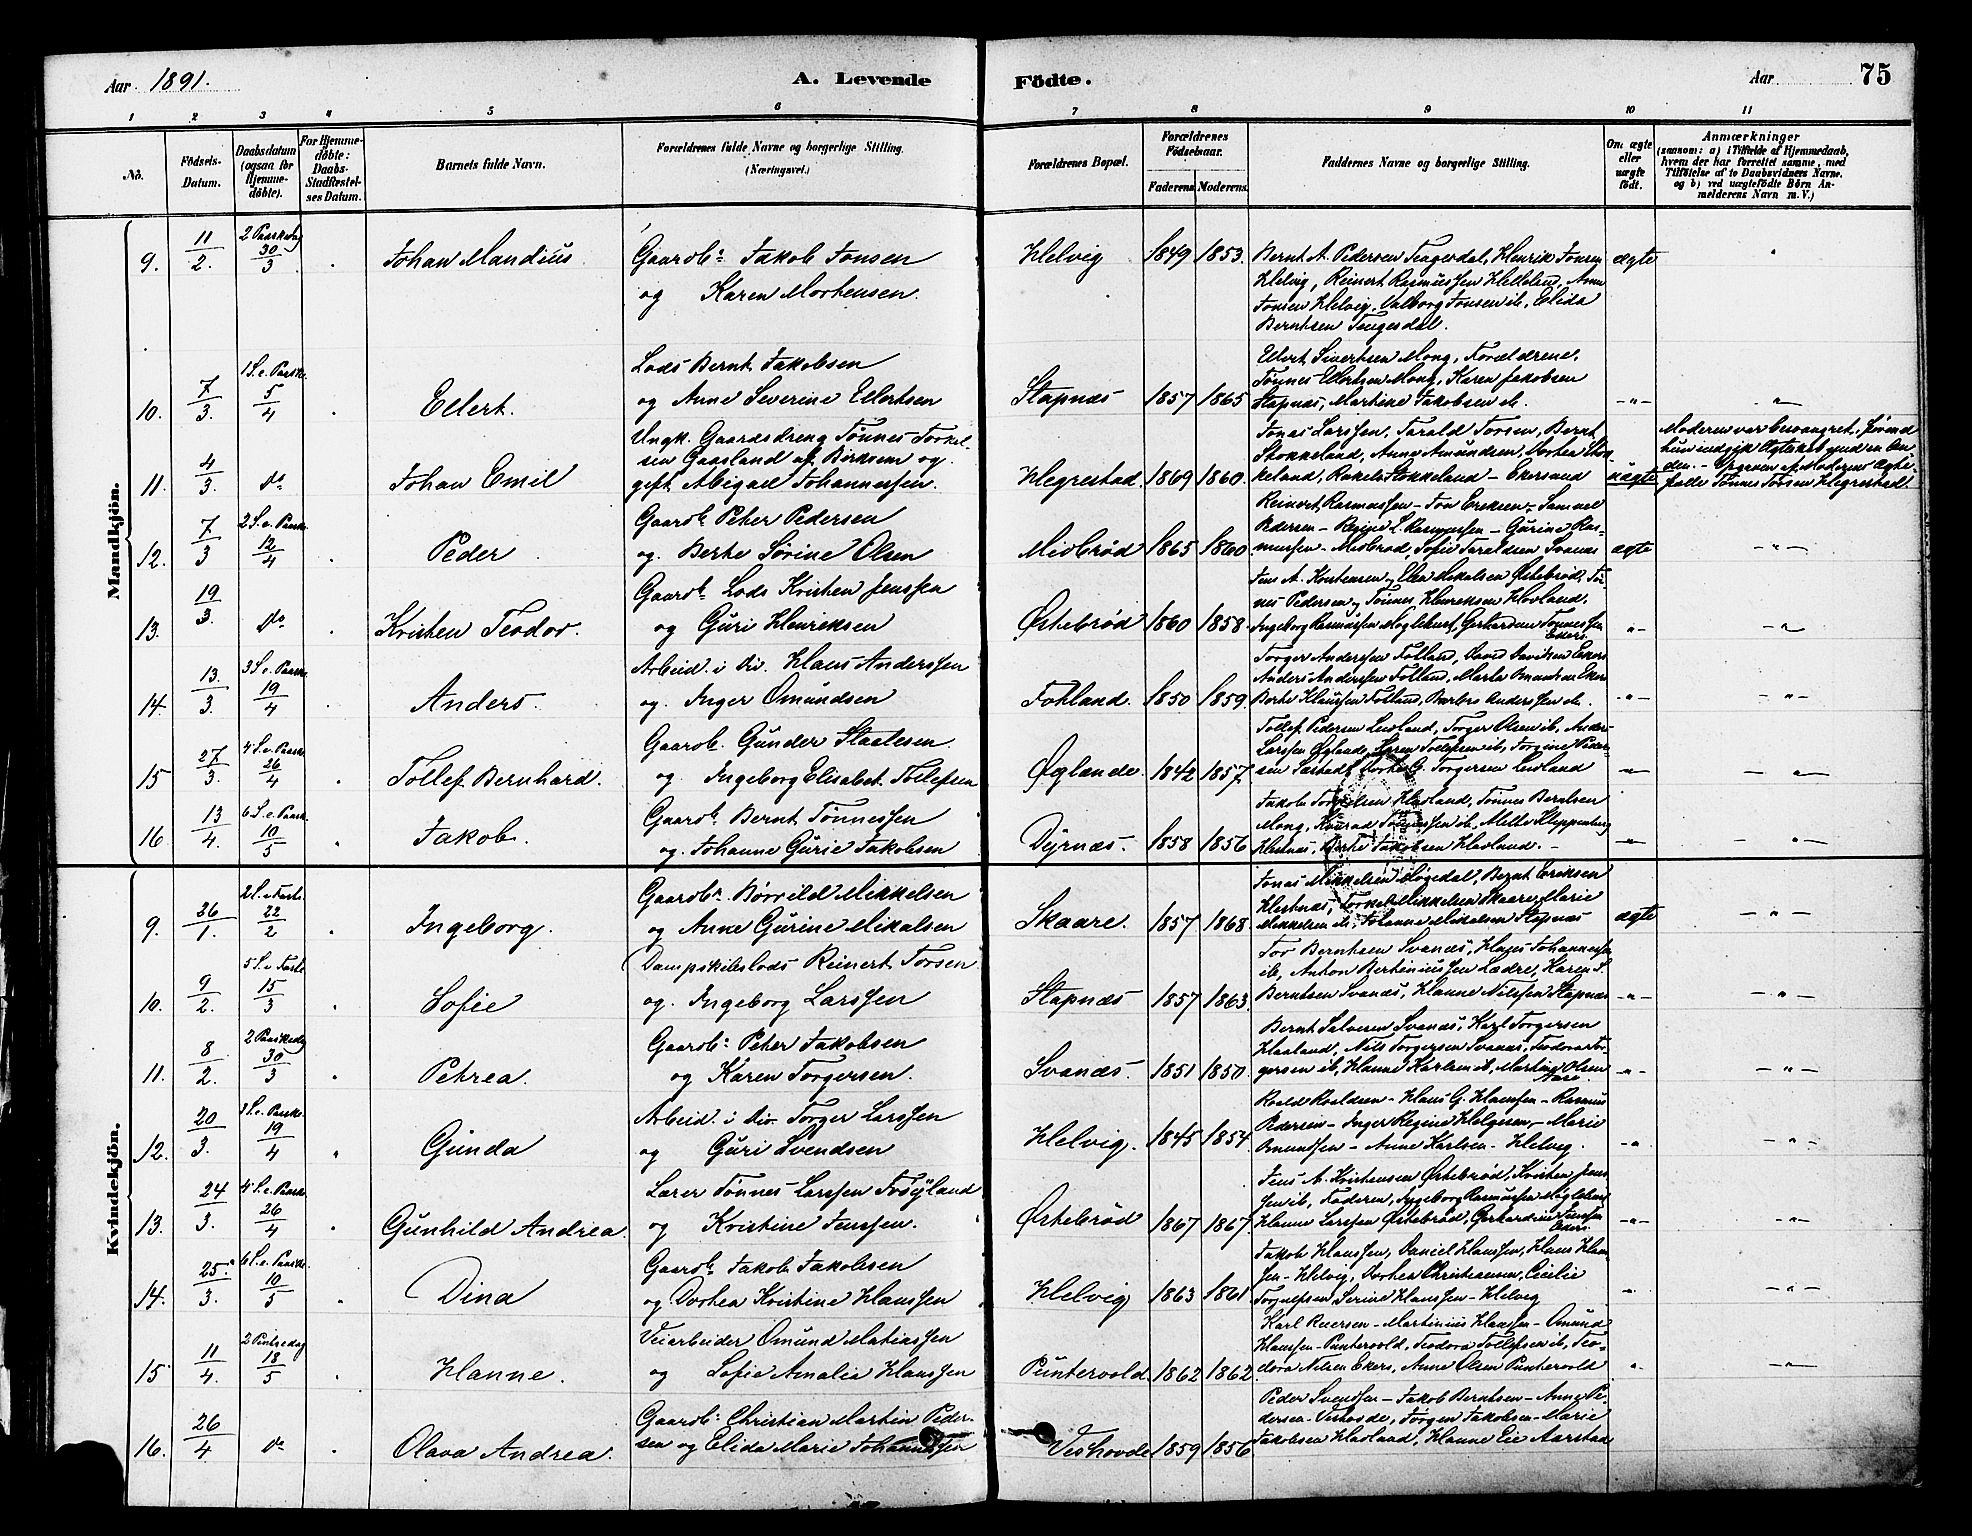 Aar 1891.
A. Levende
Födte.
Aar
75
1 2 3 4 5 6 7 8 9 10 11
No.
Födsels-
Datum.
Daabsdatum
(ogsaa for
Hjemme-
døbte).
For Hjemme-
døbte:
Daabs-
Stadfæstel-
ses Datum.
Barnets fulde Navn.
Forældrenes fulde Navne og borgerlige Stilling.
(Næringsvei.)
Forældrenes Bopæl.
Forældrenes
Födselsaar.
Faderens Moderens
Faddernes Navne og borgerlige Stilling.
Om ægte
eller
uægte
født.
Anmærkninger
(saasom: a) i Tilfælde af Hjemmedaab,
hvem der har forrettet samme, med
Tilföielse af to Daabsvidners Navne.
og b) ved uægtefödte Börn An-
melderens Navn m. V.)
Mandkjön.
9. 11/2. 2 Paaskedag 30/3 Johan Mandius
Gaardbr. Jakob Jonsen
og Karen Mortensen.
Helvig 1849 1853.
Bernt A. Pedersen Tengesdal, Henrik Jonsen
Helvig, Reinert Rasmussen Helleland, Anne
Jonsen Helvig, Valborg Jonsen ib, Elida
Berntsen Tengesdal.
ægte
10. 7/3. 1 S. e. Paaske 5/4 Ellert.
Lods Bernt Jakobsen
og Anne Severine Ellertsen
Stapnæs 1857 1865
Ellert Sivertsen Mong, Forældrene,
Tønnes Ellertsen Mong, Karen Jakobsen
Stapnæs, Martine Jakobsen ib.
-"- -"-
11. 4/3. do Johan Emil
Ungk. Gaardsdreng Tønnes Torkel-
sen Gaasland af Birkrem og
gift Abigael Johannessen.
Hegrestad. 1869 1860.
Jonas Larssen, Tarald Torsen, Bernt
Stokkeland, Anne Amundsen, Dorthea Stok-
keland, Rakel Stokkeland - Ekersund
uægte
Moderen var besvangret, førend
hun indgik Ægteskab med en An-
den. - Opgaven af Moderens Ægte-
fælle Tønnes Torsen Hegrestad.
12. 7/3 2 S. e. Paaske 12/4 Peder
Gaardbr. Peter Pedersen
og Berte Sørine Olsen
Midbrød 1865 1860
Reinert Rasmussen - Jon Ereksen - Samuel
Pedersen - Regine L. Rasmussen - Gurine Ras-
mussen - Midbrød, Sofie Taraldsen Svanæs
ægte -"-
13. 19/3. do Kristen Teodor.
Gaardbr. Lods Kristen Jenssen
og Guri Henriksen
Østebrød 1860 1858.
Jens A. Kristensen, Elen Mikalsen Østebrød, Tøn-
nes Pedersen, Tønnes Henriksen Hovland,
Ingeborg Rasmussen Maglehust, Gerhardine Tønnessen
Ekers.
-"- -"-
14. 13/3. 3 S. e. Paaske 19/4 Anders.
Arbeid. i Div. Hans Anderssen
og Inger Omundsen
Fotland. 1850 1859
Torger Anderssen Fotland, David Davidsen Ekers
Anders Anderssen Fotland, Marta Omundsen Ekers
Berte Hanssen Fotland, Barbro Anderssen ib.
-"- -"-
15 27/3. 4 S. e. Paaske 26/4 Tollef Bernhard.
Gaardb. Gunder Staalesen
og Ingeborg Elisabet Tollefsen
Øglænde. 1842 1857.
Tollef Pedersen Leidland, Torger Olsen ib, Anders
Larssen Øglænd, Søren Tollefsen ib, Torgine Peder-
sen Sæstad, Dorte G. Torgersen Leidland
-"- -"-
16 13/4. 6 S. e. Paask. 10/5 Jakob.
Gaardbr. Bernt Tønnessen
og Johanne Gurie Jakobsen
Dyrnæs. 1858 1856
Jakob Torkelsen Havland, Tønnes Berntsen
Mong, Konrad Tønnessen ib, Mette Kleppenberg
Hestnæs, Berte Jakobsen Havland.
-"- -"-
Kvindekjön.
9. 26/1. 2 S. i Faste 22/2 Ingeborg.
Gaardbr. Børreild Mikkelsen
og Anne Gurine Mikalsen
Skaare. 1857 1868.
Jonas Mikkelsen Møgedal, Bernt Eriksen
Hestnæs, Torkel Mikkelsen Skaare, Marie
Mikkelsen ib, Johanne Mikalsen Stapnæs
ægte -"-
10. 9/2. 5 S. i Faste 15/3 Sofie
Dampskibslods Reinert Torsen
og Ingeborg Larssen
Stapnæs 1857 1863.
Tor Berntsen Svanæs, Hans Johannessen
ib, Anton Bertiniussen Lædre, Karen S.
Berntsen Svanæs, Hanne Nilssen Stapnæs
-"- -"-
11. 8/2. 2 Paaskedag 30/3 Petrea.
Gaardb. Peter Jakobsen
og Karen Torgersen.
Svanæs. 1851 1850.
Bernt Salvesen Svanæs, Karl Torgersen
Haaland, Nils Torgersen Svanæs, Teodora Tor-
gersen ib, Hanne Karlsen ib, Martine Olsen
-"- -"-
12. 20/3. 3 S. e. Paaske. 19/4 Gunda
Arbeid. i Div. Torger Larssen
og Guri Svendsen
Helvig. 1845 1854
Roald Roaldsen - Hans G. Hanssen - Rasmus
Pedersen - Inger Regine Helgesen - Marie
Omundsen - Anne Karlsen - Helvig.
-"- -"-
13. 24/3. 4 S. e. Paaske 26/4 Gunhild Andrea.
Lærer Tønnes Larssen Fosyland
og Kristine Jenssen.
Østebrød 1867 1867.
Jens A. Kristensen Østebrød, Kristen Jens-
sen ib, Faderen, Ingeborg Rasmussen Maglehust
Hanne Larssen Østebrød, Gerhardine Jenssen
Ekers.
-"- -"-
14. 25/3. 6 S. e. Paaske 10/5 Dina
Gaardbr. Jakob Jakobsen
og Dorthea Kristine Hanssen
Helvig 1863 1861
Jakob Hanssen, Daniel Hanssen, Hans Hans-
sen - Helvig, Dorthea Christiansen, Cicilie
Torgersen Serine Hanssen - Helvig
-"- -"-
15 11/4. 2 Pintsedag 18/5 Hanne.
Veiarbeider Omund Matiassen
og Sofie Amalie Hanssen
Puntervold. 1862 1862
Karl Reiersen - Martinius Hanssen - Omund
Hanssen - Puntervold, Teodora Tollefsen ib, Teo-
dora Nilsen Ekers, Anne Olsen Puntervold
" -"-
16. 26/4 do Olava Andrea.
Gaardb. Christian Martin Peder-
sen og Elida Marie Johannessen
Veshovde 1859 1856
Peder Svendsen - Jakob Berntsen - Anne Pe-
dersen - Veshovde, Jørgen Jakobsen - Marie
Jakobsen Havland, Hanne Eie Aarstad